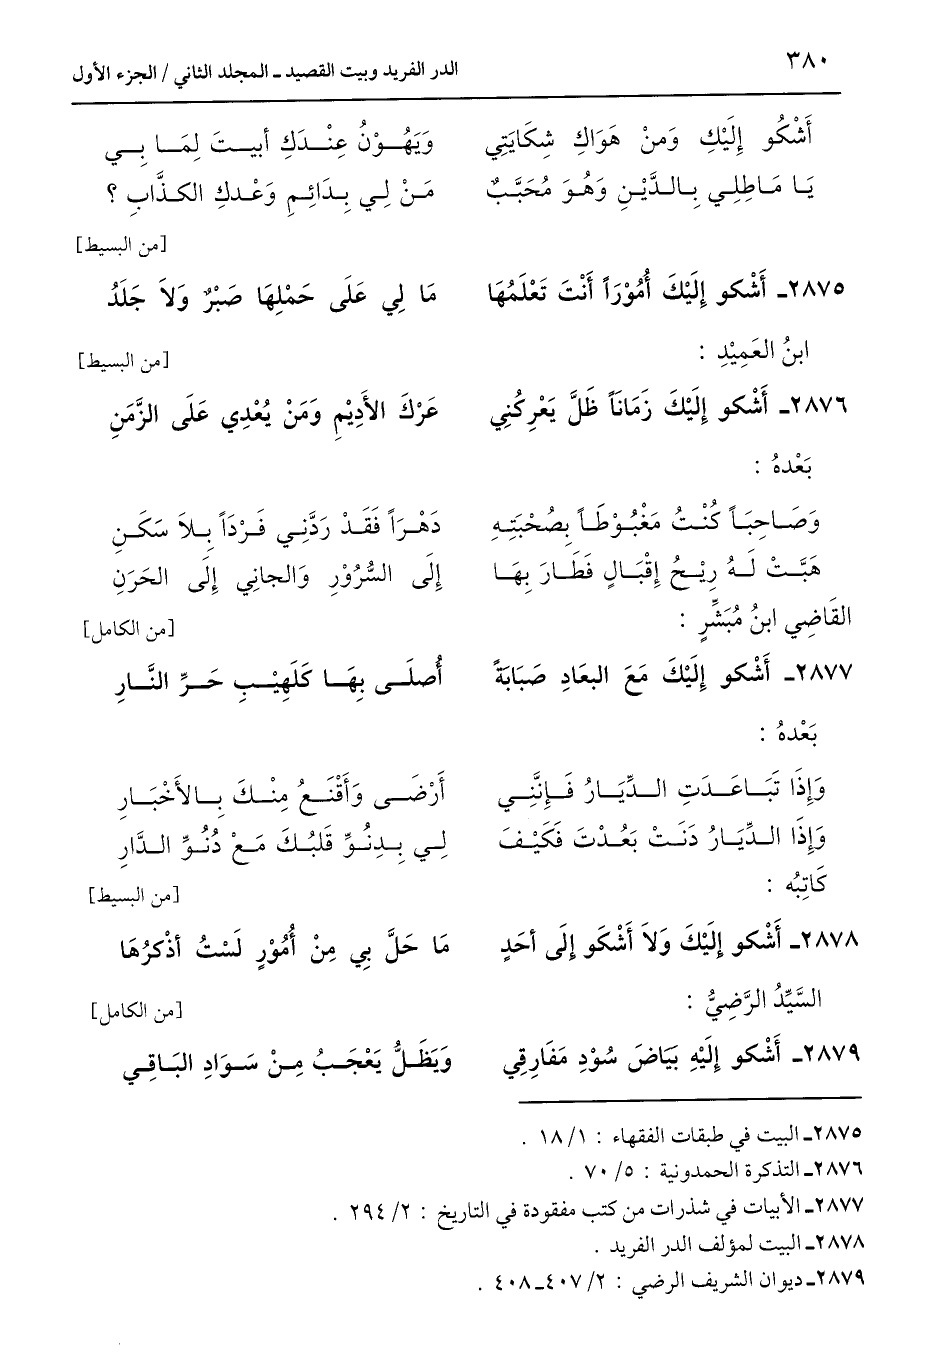 ٣٨٠ الدر الفريد وبيت القصيد ـ المجلد الثاني / الجزء الأول
أَشْكُو إِلَيْكِ وَمِنْ هَوَاكِ شِكَايَتِي وَيَهُوْنُ عِنْدَكِ أبيتَ لِمَا بِي
يَا مَاطِلِي بِالدَّيْنِ وَهُوَ مُحَبَّبٌ مَنْ لِي بِدَائِمِ وَعْدِكِ الكذَّابِ ؟
[من البسيط]
٢٨٧٥ـ أَشْكو إِلَيْكَ أُمُوْرَاً أَنْتَ تَعْلَمُهَا مَا لِي عَلَى حَمْلِهَا صَبْرٌ وَلاَ جَلَدُ
ابنُ العَمِيْدِ : [من البسيط]
٢٨٧٦ـ أَشْكو إِلَيْكَ زَمَانَاً ظَلَّ يَعْرِكُنِي عَرْكَ الأَدِيْمِ وَمَنْ يُعْدِي عَلَى الزَّمَنِ
بَعْدهُ :
وَصَاحِبَاً كُنْتُ مَغْبُوْطَاً بِصُحْبَتِهِ دَهْرَاً فَقَدْ رَدَّنِي فَرْدَاً بِلاَ سَكَنِ
هَبَّتْ لَهُ رِيْحُ إقْبَالٍ فَطَارَ بِهَا إِلَى السُّرُوْرِ وَالجانِي إِلَى الحَزَنِ
القَاضِي ابنُ مُبَشِّرٍ : [من الكامل]
٢٨٧٧ـ أَشْكو إِلَيْكَ مَعَ البعَادِ صَبَابَةً أُصلَى بِهَا كَلَهِيْبِ حَرِّ النَّارِ
بَعْدهُ :
وَإِذَا تَبَاعَدَتِ الدِّيَارُ فَإِنَّنِي أَرْضَى وَأَقْنَعُ مِنْكَ بِالأَخْبَارِ
وَإِذَا الدِّيَارُ دَنَتْ بَعُدْتَ فَكَيْفَ لِي بِدنُوِّ قَلبُكَ مَعْ دُنُوِّ الدَّارِ
كَاتِبُه : [من البسيط]
٢٨٧٨ـ أَشْكو إِلَيْكَ وَلاَ أَشْكو إِلَى أحَدٍ مَا حَلَّ بِي مِنْ أُمُوْرٍ لَسْتُ أذْكرُهَا
السَّيِّدُ الرَّضِيُّ : [من الكامل]
٢٨٧٩ـ أَشْكو إِلَيْهِ بَيَاضَ سُوْدِ مَفَارِقِي وَيَظَلُّ يَعْجَبُ مِنْ سَوَادِ البَاقِي
٢٨٧٥ـ البيت في طبقات الفقهاء : ١/ ١٨ .
٢٨٧٦ـ التذكرة الحمدونية : ٥/ ٧٠ .
٢٨٧٧ـ الأبيات في شذرات من كتب مفقودة في التاريخ : ٢/ ٢٩٤ .
٢٨٧٨ـ البيت لمؤلف الدر الفريد .
٢٨٧٩ـ ديوان الشريف الرضي : ٢/ ٤٠٧ـ٤٠٨ .